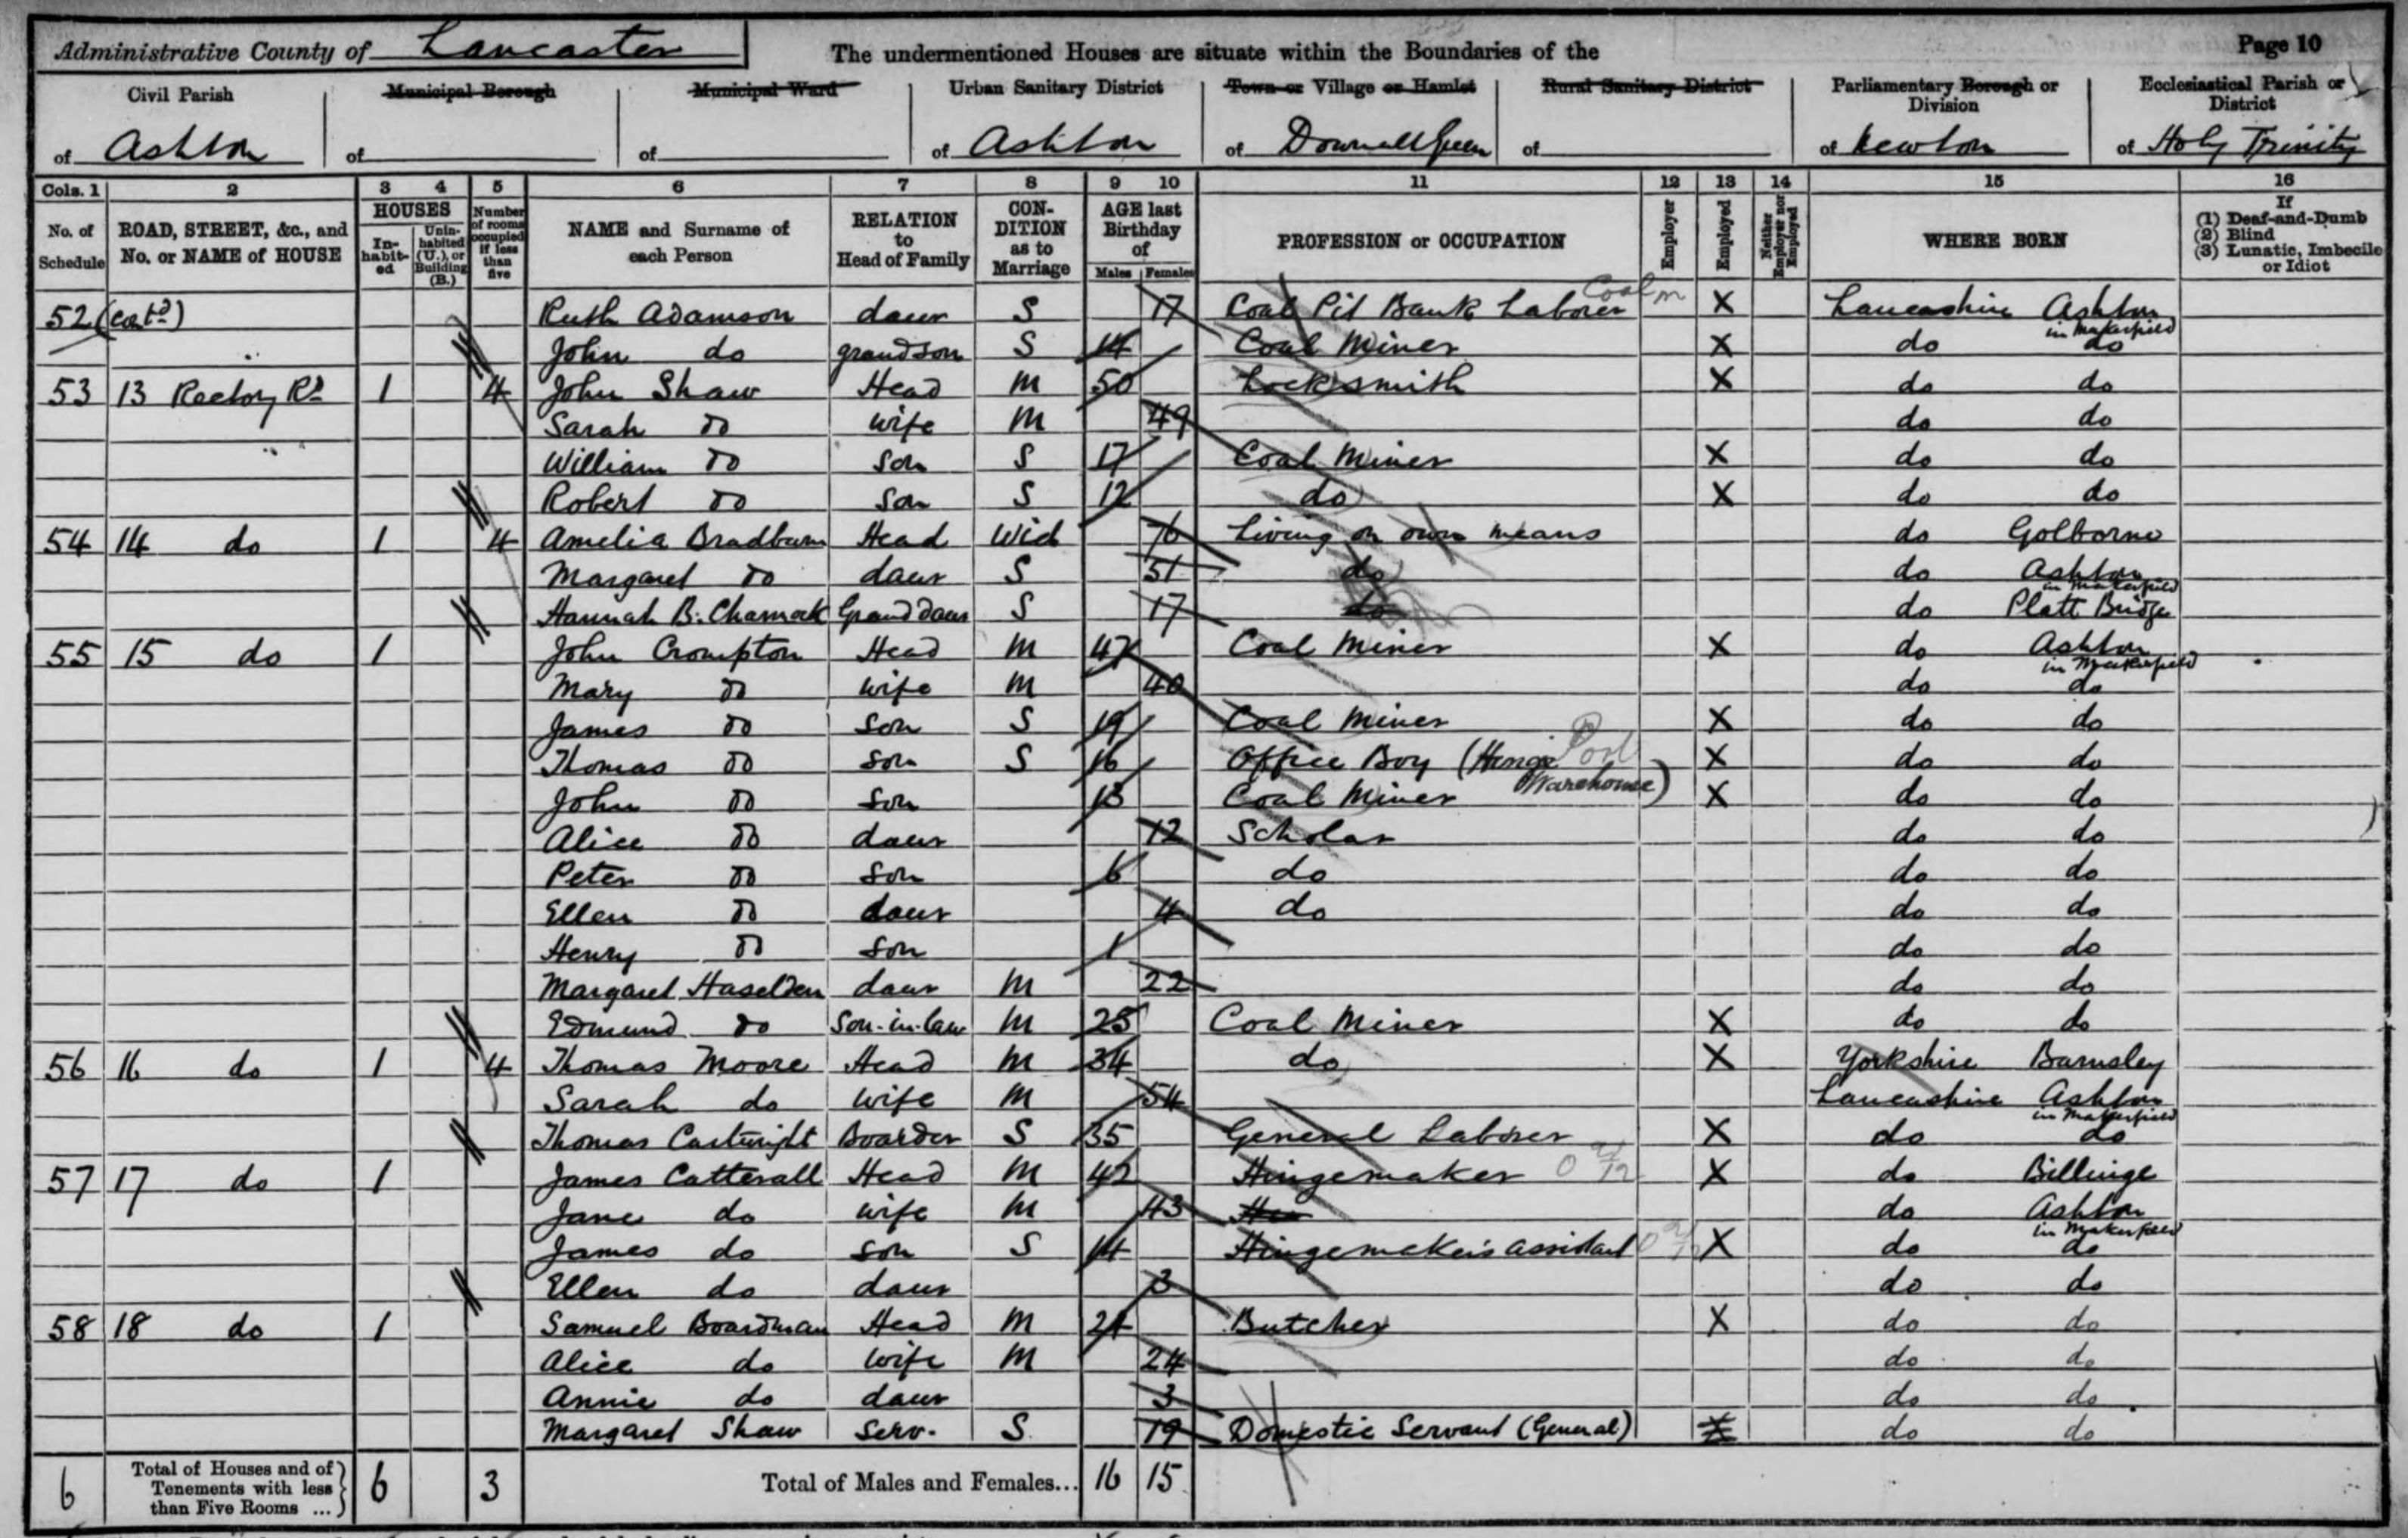 Administrative County of Lancaster The undermentioned Houses are situate within the Boundaries of the Page 10
Civil Parish Municipal Borough Municipal Ward Urban Sanitary District Town or Village or Hamlet Rural Sanitary District Parliamentary Borough or Division Ecclesiastical Parish or District
of Ashton of of of Ashton of Downall Green of of Newton of Holy Trinity
Cols. 1 2 3 4 5 6 7 8 9 10 11 12 13 14 15 16
No. of Schedule ROAD, STREET, &c., and No. or NAME of HOUSE HOUSES Inhabited Uninhabited (U.), or Building (B.) Number of rooms occupied if less than five NAME and Surname of each Person RELATION to Head of Family CONDITION as to Marriage AGE last Birthday of Males Females PROFESSION or OCCUPATION Employer Employed Neither Employer nor Employed WHERE BORN If (1) Deaf-and-Dumb (2) Blind (3) Lunatic, Imbecile or Idiot
52 (contd) Ruth Adamson daur S 17 Coal Pit Bank Laborer Coal m X Lancashire Ashton in Makerfield
John do grandson S 14 Coal Miner X do do
53 13 Rectory Rd 1 4 John Shaw Head M 50 Locksmith X do do
Sarah do wife M 49 do do
William do son S 17 Coal Miner X do do
Robert do son S 12 do X do do
54 14 do 1 4 Amelia Bradburn Head Wid 76 Living on own means do Golborne
Margaret do daur S 51 do do Ashton in Makerfield
Hannah B. Charnock Grand daur S 17 do do Platt Bridge
55 15 do 1 John Crompton Head M 47 Coal Miner X do Ashton in Makerfield
Mary do wife M 40 do do
James do son S 19 Coal Miner X do do
Thomas do son S 16 Office Boy (Hinge Warehouse) X do do
John do son 13 Coal Miner X do do
Alice do daur 12 Scholar do do
Peter do son 6 do do do
Ellen do daur 4 do do do
Henry do son 1 do do
Margaret Haselden daur M 22 do do
Edmund do Son-in-law M 25 Coal Miner X do do
56 16 do 1 4 Thomas Moore Head M 34 do X Yorkshire Barnsley
Sarah do wife M 54 Lancashire Ashton in Makerfield
Thomas Cartwright Boarder S 35 General Laborer X do do
57 17 do 1 James Catterall Head M 42 Hingemaker X do Billinge
Jane do wife M 43 do Ashton in Makerfield
James do son S 14 Hingemaker's assistant X do do
Ellen do daur 3 do do
58 18 do 1 Samuel Boardman Head M 24 Butcher X do do
Alice do wife M 24 do do
Annie do daur 3 do do
Margaret Shaw Serv. S 19 Domestic Servant (General) X do do
6 Total of Houses and of Tenements with less than Five Rooms ... 6 3 Total of Males and Females... 16 15